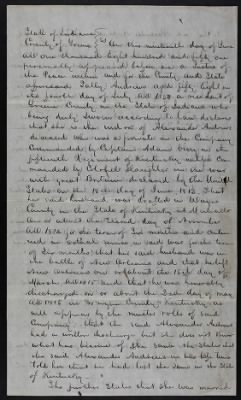 State of Indiana
County of Greene } On this nineteenth day of June
A D one thousand Eight hundred and fifty one
personally appeared before me a Justice of
the Peace within and for the County and State
aforesaid Sally Andrews aged fifty Eight on
the fourth day of July A D 1851 a resident of
Greene County in the State of Indiana who
being duly sworn according to law declares
that she is the widow of Alexander Andrews
deceased who was a private in the Company
Commanded by Captain Adams Berry in the
fifteenth Regiment of Kentucky militia Com
manded by Colonel Slaughter in the war
with great Britain declared by the United
States on the 18th day of June 1812. That
her said husband was drafted in Wayne
County in the State of Kentucky
on or about the day of November
A D 1814 for the term of Six months and contin
ued in actual service in said war for the term
of Six months that his said husband was in
the battle of New Orleans and that he left
New Orleans on or about the 15th day of
March A D 1815 and that he was honorably
discharged on or about the day of May
A D 1815 in County Kentucky as
will appear by the muster rolls of said
Company that the said Alexander Andrews
had a written discharge but she does not know
what has become of the same she States that
the said Alexander Andrews in his life time
Told her that he had lost the Same in the State
of Kentucky
She further States that she was married